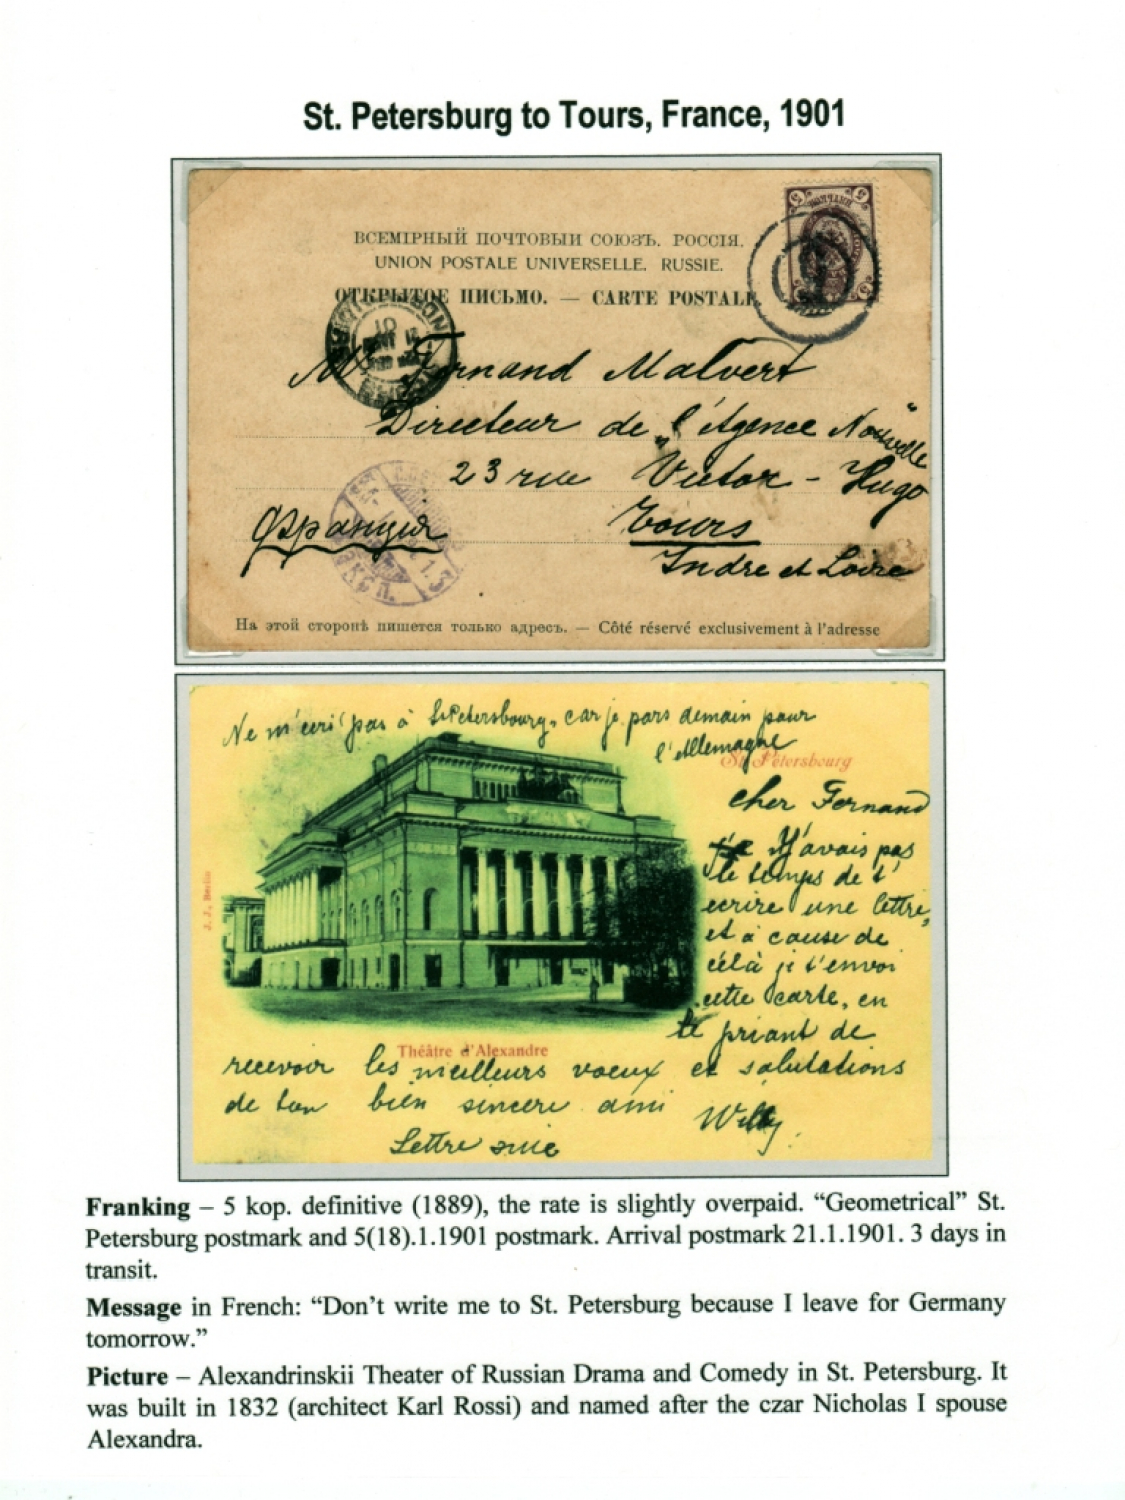 St. Petersburg to Tours, France, 1901
ВСЕМІРНЫЙ ПОЧТОВЫЙ СОЮЗЪ. РОССІЯ.
UNION POSTALE UNIVERSELLE. RUSSIE.
ОТКРЫТОЕ ПИСЬМО. — CARTE POSTALE
Mr Fernand Malvert
Directeur de „l'Agence Nouvelle"
23 rue Victor - Hugo
Франція Tours
Indre et Loire
На этой сторонѣ пишется только адресъ. — Côté réservé exclusivement à l'adresse
Ne m'ecri pas à St Petersbourg, car je pars demain pour
l'Allemagne
St. Pétersbourg
cher Fernand
N'avais pas
le temps de t'
ecrire une lettre,
et à cause de
célà je t'envoi
cette carte, en
te priant de
J. J. Berlin
Théâtre d'Alexandre
recevoir les meilleurs voeux et salutations
de ton bien sincere ami Willy.
Lettre suie
Franking – 5 kop. definitive (1889), the rate is slightly overpaid. “Geometrical” St.
Petersburg postmark and 5(18).1.1901 postmark. Arrival postmark 21.1.1901. 3 days in
transit.
Message in French: “Don’t write me to St. Petersburg because I leave for Germany
tomorrow.”
Picture – Alexandrinskii Theater of Russian Drama and Comedy in St. Petersburg. It
was built in 1832 (architect Karl Rossi) and named after the czar Nicholas I spouse
Alexandra.